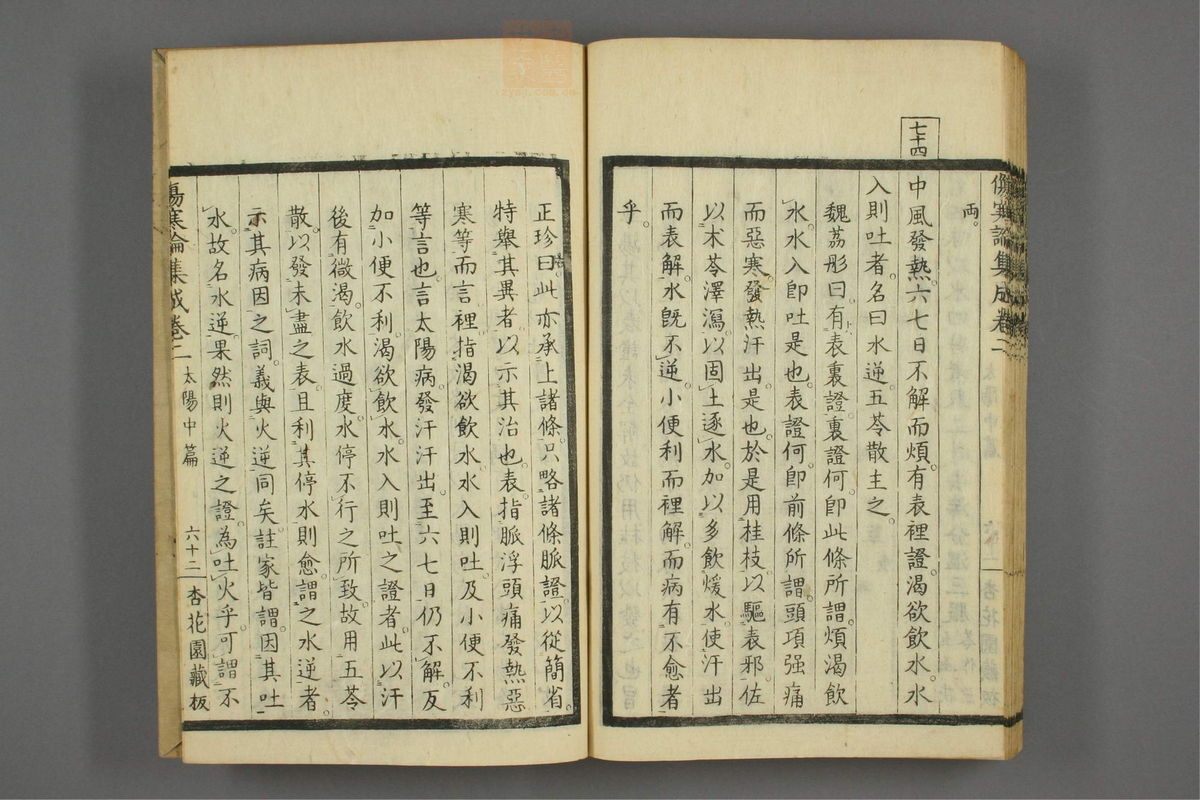 傷寒論集成卷二
兩。
七十四
中風發熱。六七日不解而煩。有表裡證。渴欲飲水。水
入則吐者。名曰水逆。五苓散主之。
魏荔彤曰。有表裏證。裏證何。卽此條所謂煩渴飲
水。水入卽吐是也。表證何。卽前條所謂頭項强痛
而惡寒。發熱汗出是也。於是用桂枝以驅表邪。佐
以朮苓澤瀉。以固土逐水。加以多飲煖水。使汗出
而表解。水旣不逆。小便利而裡解。而病有不愈者
乎。
正珍曰。此亦承上諸條。只略諸條脈證。以從簡省。
特擧其異者。以示其治也。表。指脈浮頭痛發熱惡
寒等而言。裡指渴欲飲水。水入則吐。及小便不利
等言也。言太陽病。發汗汗出。至六七日仍不解。反
加小便不利。渴欲飲水。水入則吐之證者。此以汗
後有微渴。飲水過度。水停不行之所致。故用五苓
散。以發未盡之表。且利其停水則愈。謂之水逆者。
示其病因之詞。義與火逆同矣。註家皆謂。因其吐
水。故名水逆。果然則火逆之證。為吐火乎。可謂不
傷寒論集成卷二 太陽中篇 六十二 杏花園藏板